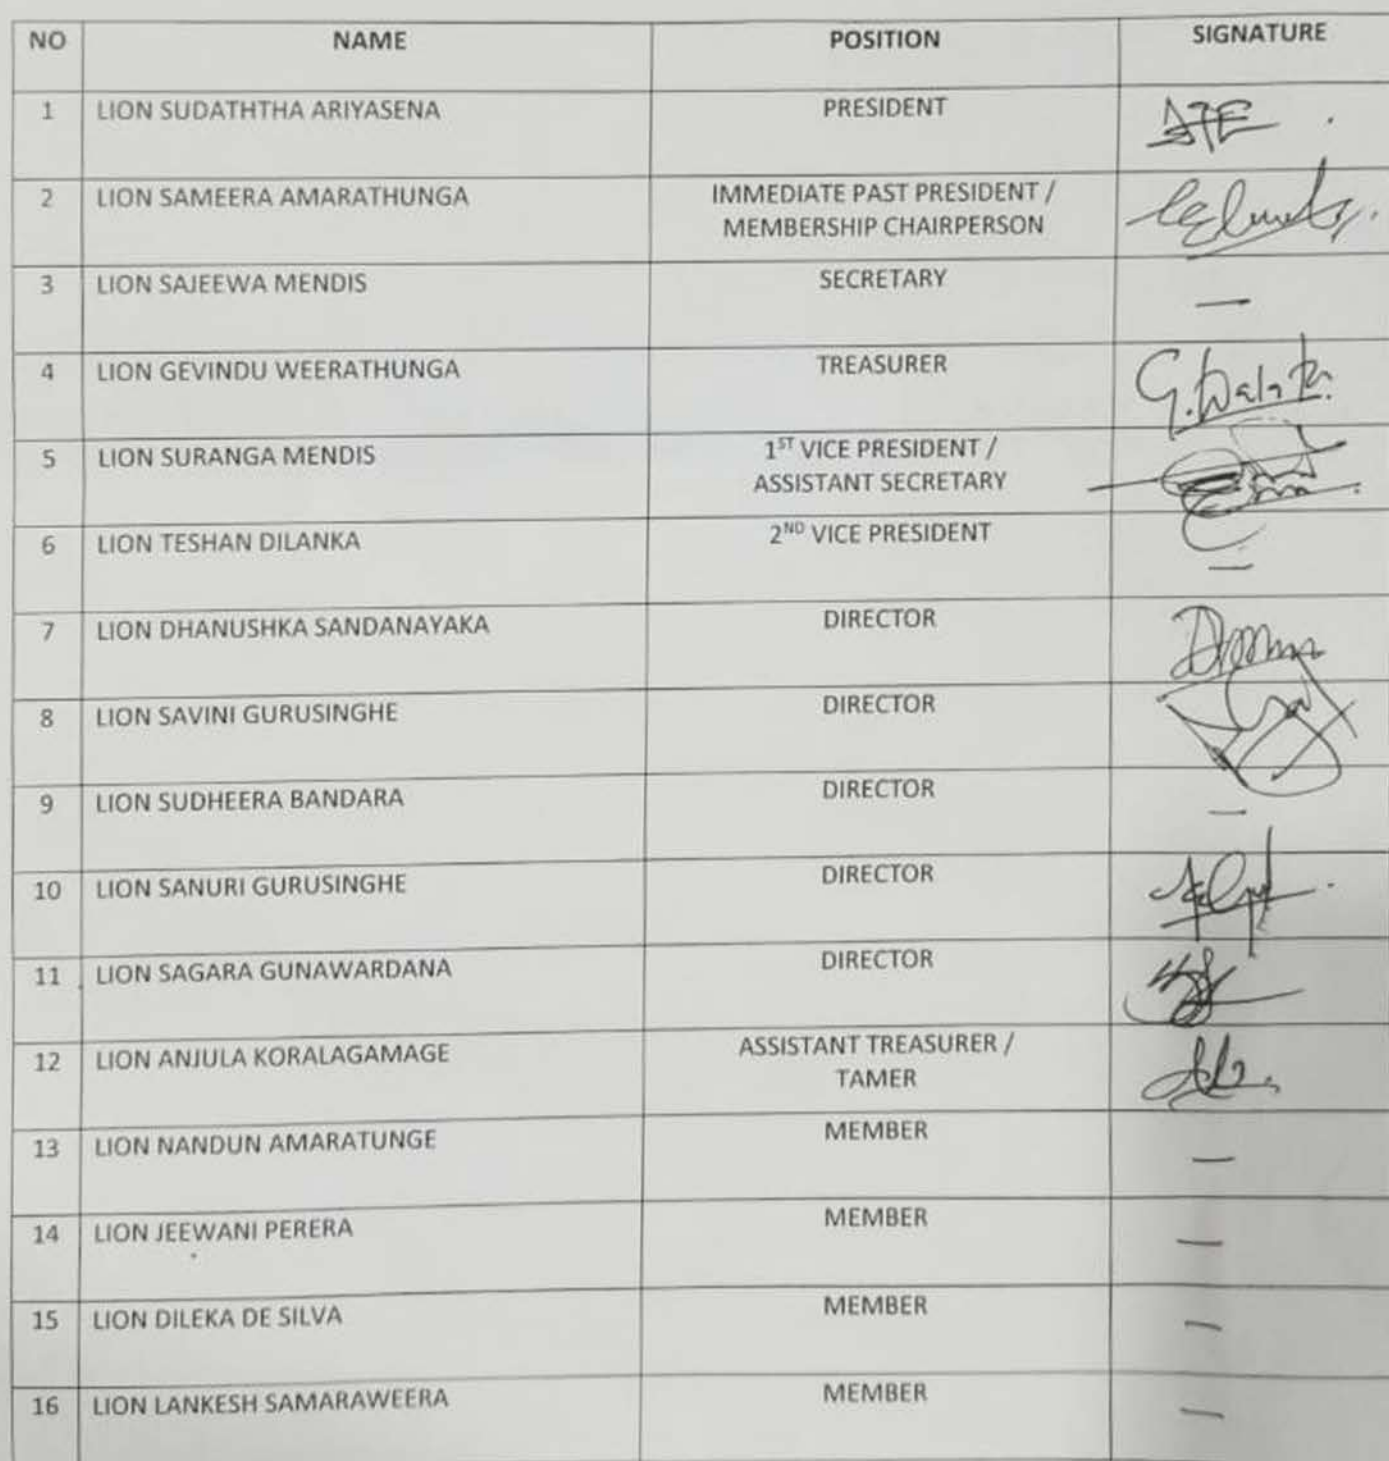 NO NAME POSITION SIGNATURE
1 LION SUDATHTHA ARIYASENA PRESIDENT
2 LION SAMEERA AMARATHUNGA IMMEDIATE PAST PRESIDENT /
MEMBERSHIP CHAIRPERSON
3 LION SAJEEWA MENDIS SECRETARY —
4 LION GEVINDU WEERATHUNGA TREASURER
5 LION SURANGA MENDIS 1ST VICE PRESIDENT /
ASSISTANT SECRETARY
6 LION TESHAN DILANKA 2ND VICE PRESIDENT —
7 LION DHANUSHKA SANDANAYAKA DIRECTOR
8 LION SAVINI GURUSINGHE DIRECTOR
9 LION SUDHEERA BANDARA DIRECTOR —
10 LION SANURI GURUSINGHE DIRECTOR
11 LION SAGARA GUNAWARDANA DIRECTOR
12 LION ANJULA KORALAGAMAGE ASSISTANT TREASURER /
TAMER
13 LION NANDUN AMARATUNGE MEMBER —
14 LION JEEWANI PERERA MEMBER —
15 LION DILEKA DE SILVA MEMBER —
16 LION LANKESH SAMARAWEERA MEMBER —